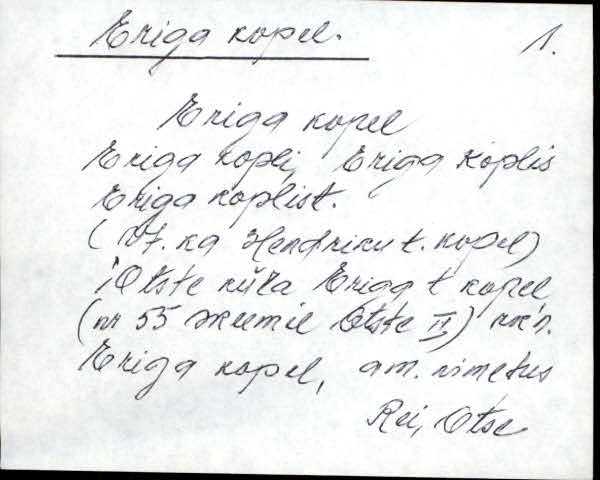 Eriga kopel. 1.
Eriga kopel
Eriga kopli, Eriga koplis
Eriga koplist.
(Vt. ka Hendriku t. kopel)
Otste küla Eriga t kopel
(nr 55 skeemil Otste II) rk'n.
Eriga kopel, am. nimetus
Rei, Otse